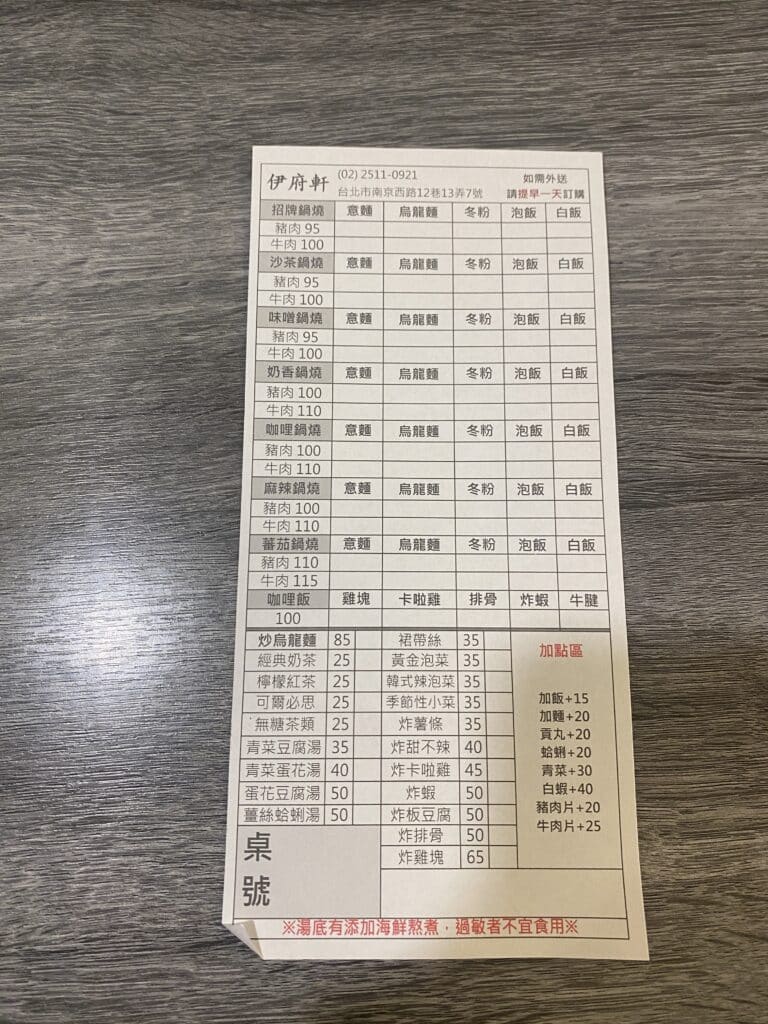 伊府軒 (02) 2511-0921 如需外送
台北市南京西路12巷13弄7號 請提早一天訂購
招牌鍋燒 意麵 烏龍麵 冬粉 泡飯 白飯
豬肉 95
牛肉 100
沙茶鍋燒 意麵 烏龍麵 冬粉 泡飯 白飯
豬肉 95
牛肉 100
味噌鍋燒 意麵 烏龍麵 冬粉 泡飯 白飯
豬肉 95
牛肉 100
奶香鍋燒 意麵 烏龍麵 冬粉 泡飯 白飯
豬肉 100
牛肉 110
咖哩鍋燒 意麵 烏龍麵 冬粉 泡飯 白飯
豬肉 100
牛肉 110
麻辣鍋燒 意麵 烏龍麵 冬粉 泡飯 白飯
豬肉 100
牛肉 110
蕃茄鍋燒 意麵 烏龍麵 冬粉 泡飯 白飯
豬肉 110
牛肉 115
咖哩飯 雞塊 卡啦雞 排骨 炸蝦 牛腱
100
炒烏龍麵 85
經典奶茶 25
檸檬紅茶 25
可爾必思 25
無糖茶類 25
青菜豆腐湯 35
青菜蛋花湯 40
蛋花豆腐湯 50
薑絲蛤蜊湯 50
裙帶絲 35
黃金泡菜 35
韓式辣泡菜 35
季節性小菜 35
炸薯條 35
炸甜不辣 40
炸卡啦雞 45
炸蝦 50
炸板豆腐 50
炸排骨 50
炸雞塊 65
加點區
加飯+15
加麵+20
貢丸+20
蛤蜊+20
青菜+30
白蝦+40
豬肉片+20
牛肉片+25
桌
號
※湯底有添加海鮮熬煮，過敏者不宜食用※